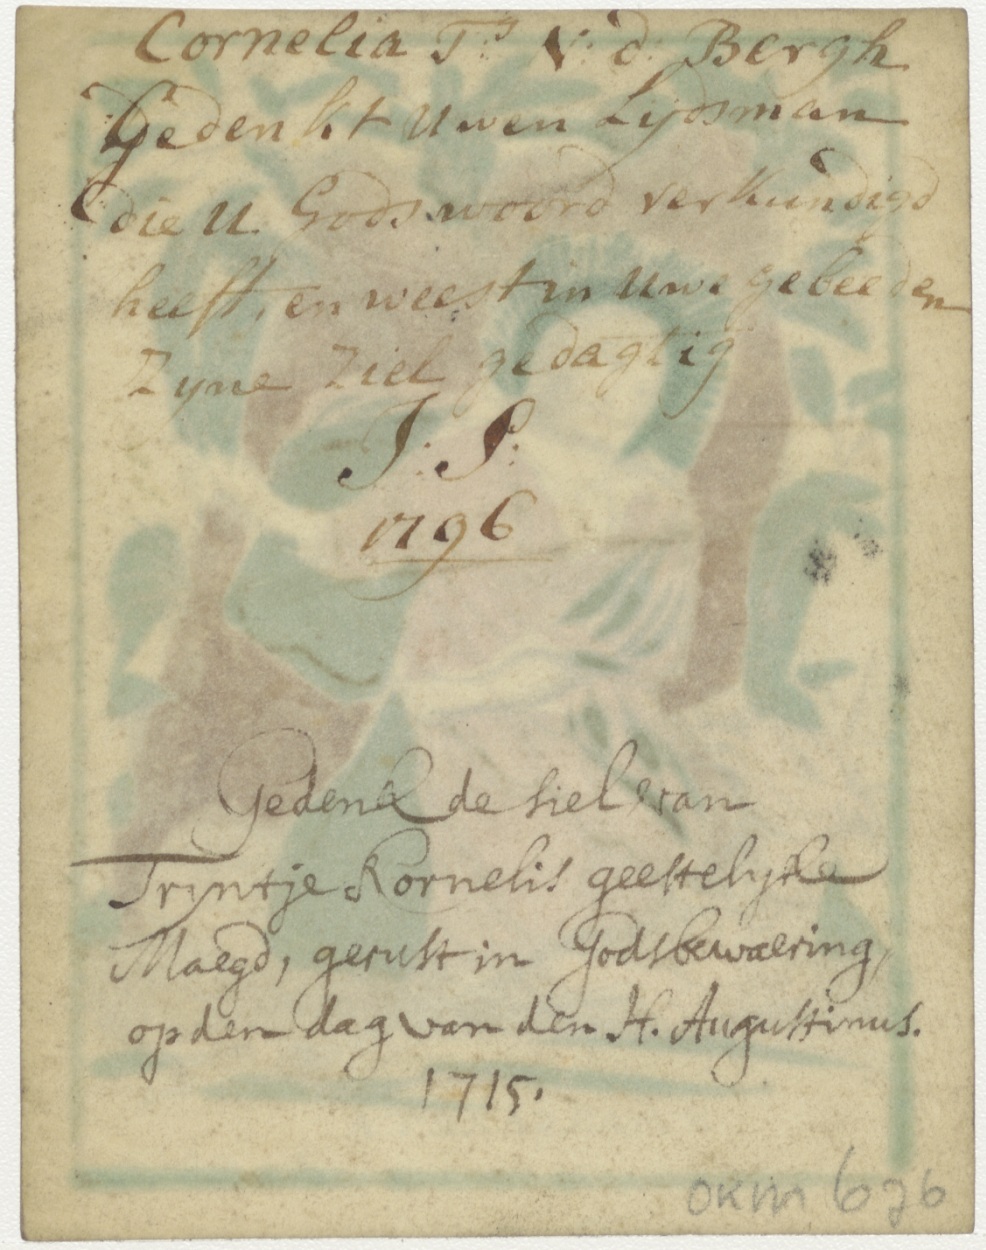 Cornelia Ts V: d: Bergh
Gedenkt Uwen Lijdsman
die U. Gods woord verkundigd
heeft, en weest in Uwe gebeeden
Zyne Ziel gedagtig
J: S:
1796
Gedenk de siel van
Tryntje Kornelis geestelyke
Maegd, gerust in Godsbewaering,
op den dag van den H. Augustinus.
1715.
OKM 676